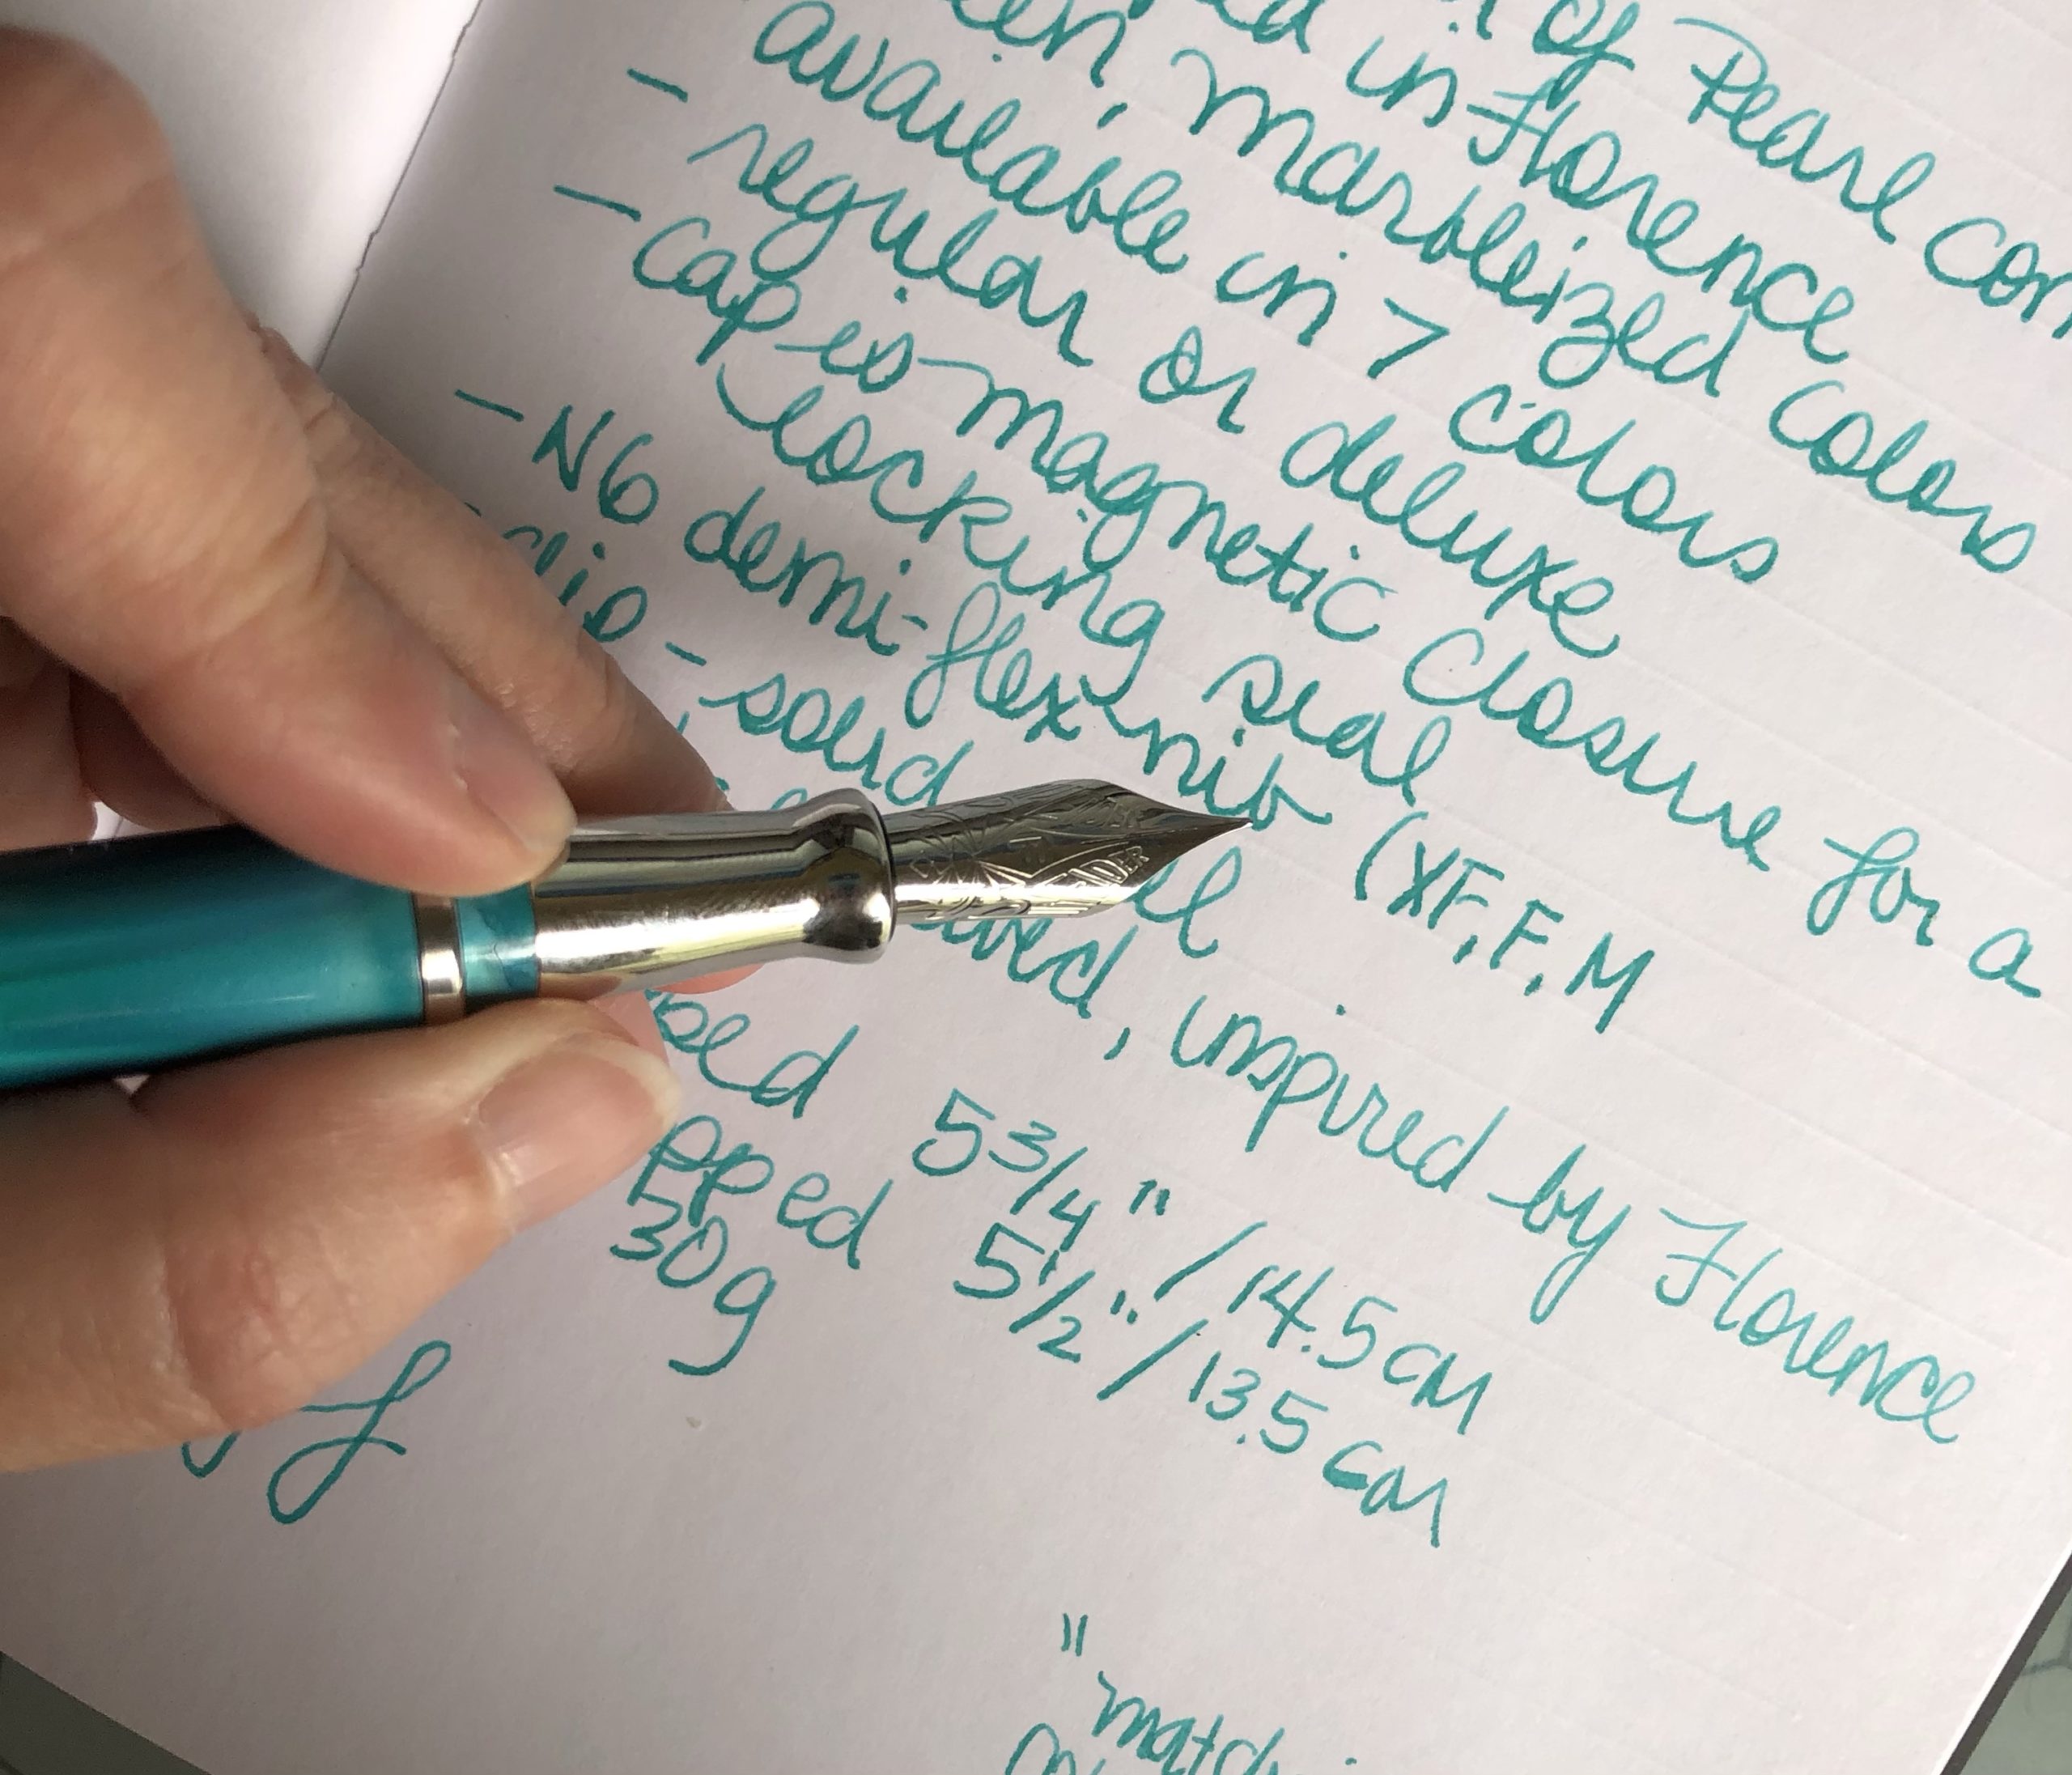 of Pearl
in Florence
marbleized colors
- available in 7 colors
- regular or deluxe
- cap is magnetic closure for a
locking seal
- N6 demi-flex nib (XF, F, M
clip - solid
, inspired by Florence
5 3/4" / 14.5 cm
pped 5 1/2" / 13.5 cm
30g
"